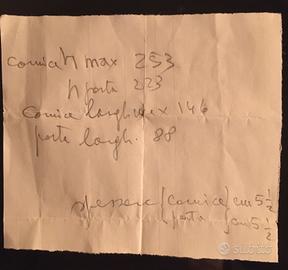 cornice h max 253
h porta 223
Cornice largh max 146
porta largh. 88
spessore (cornice) cm 5 1/2
porta cm 5 1/2
subito